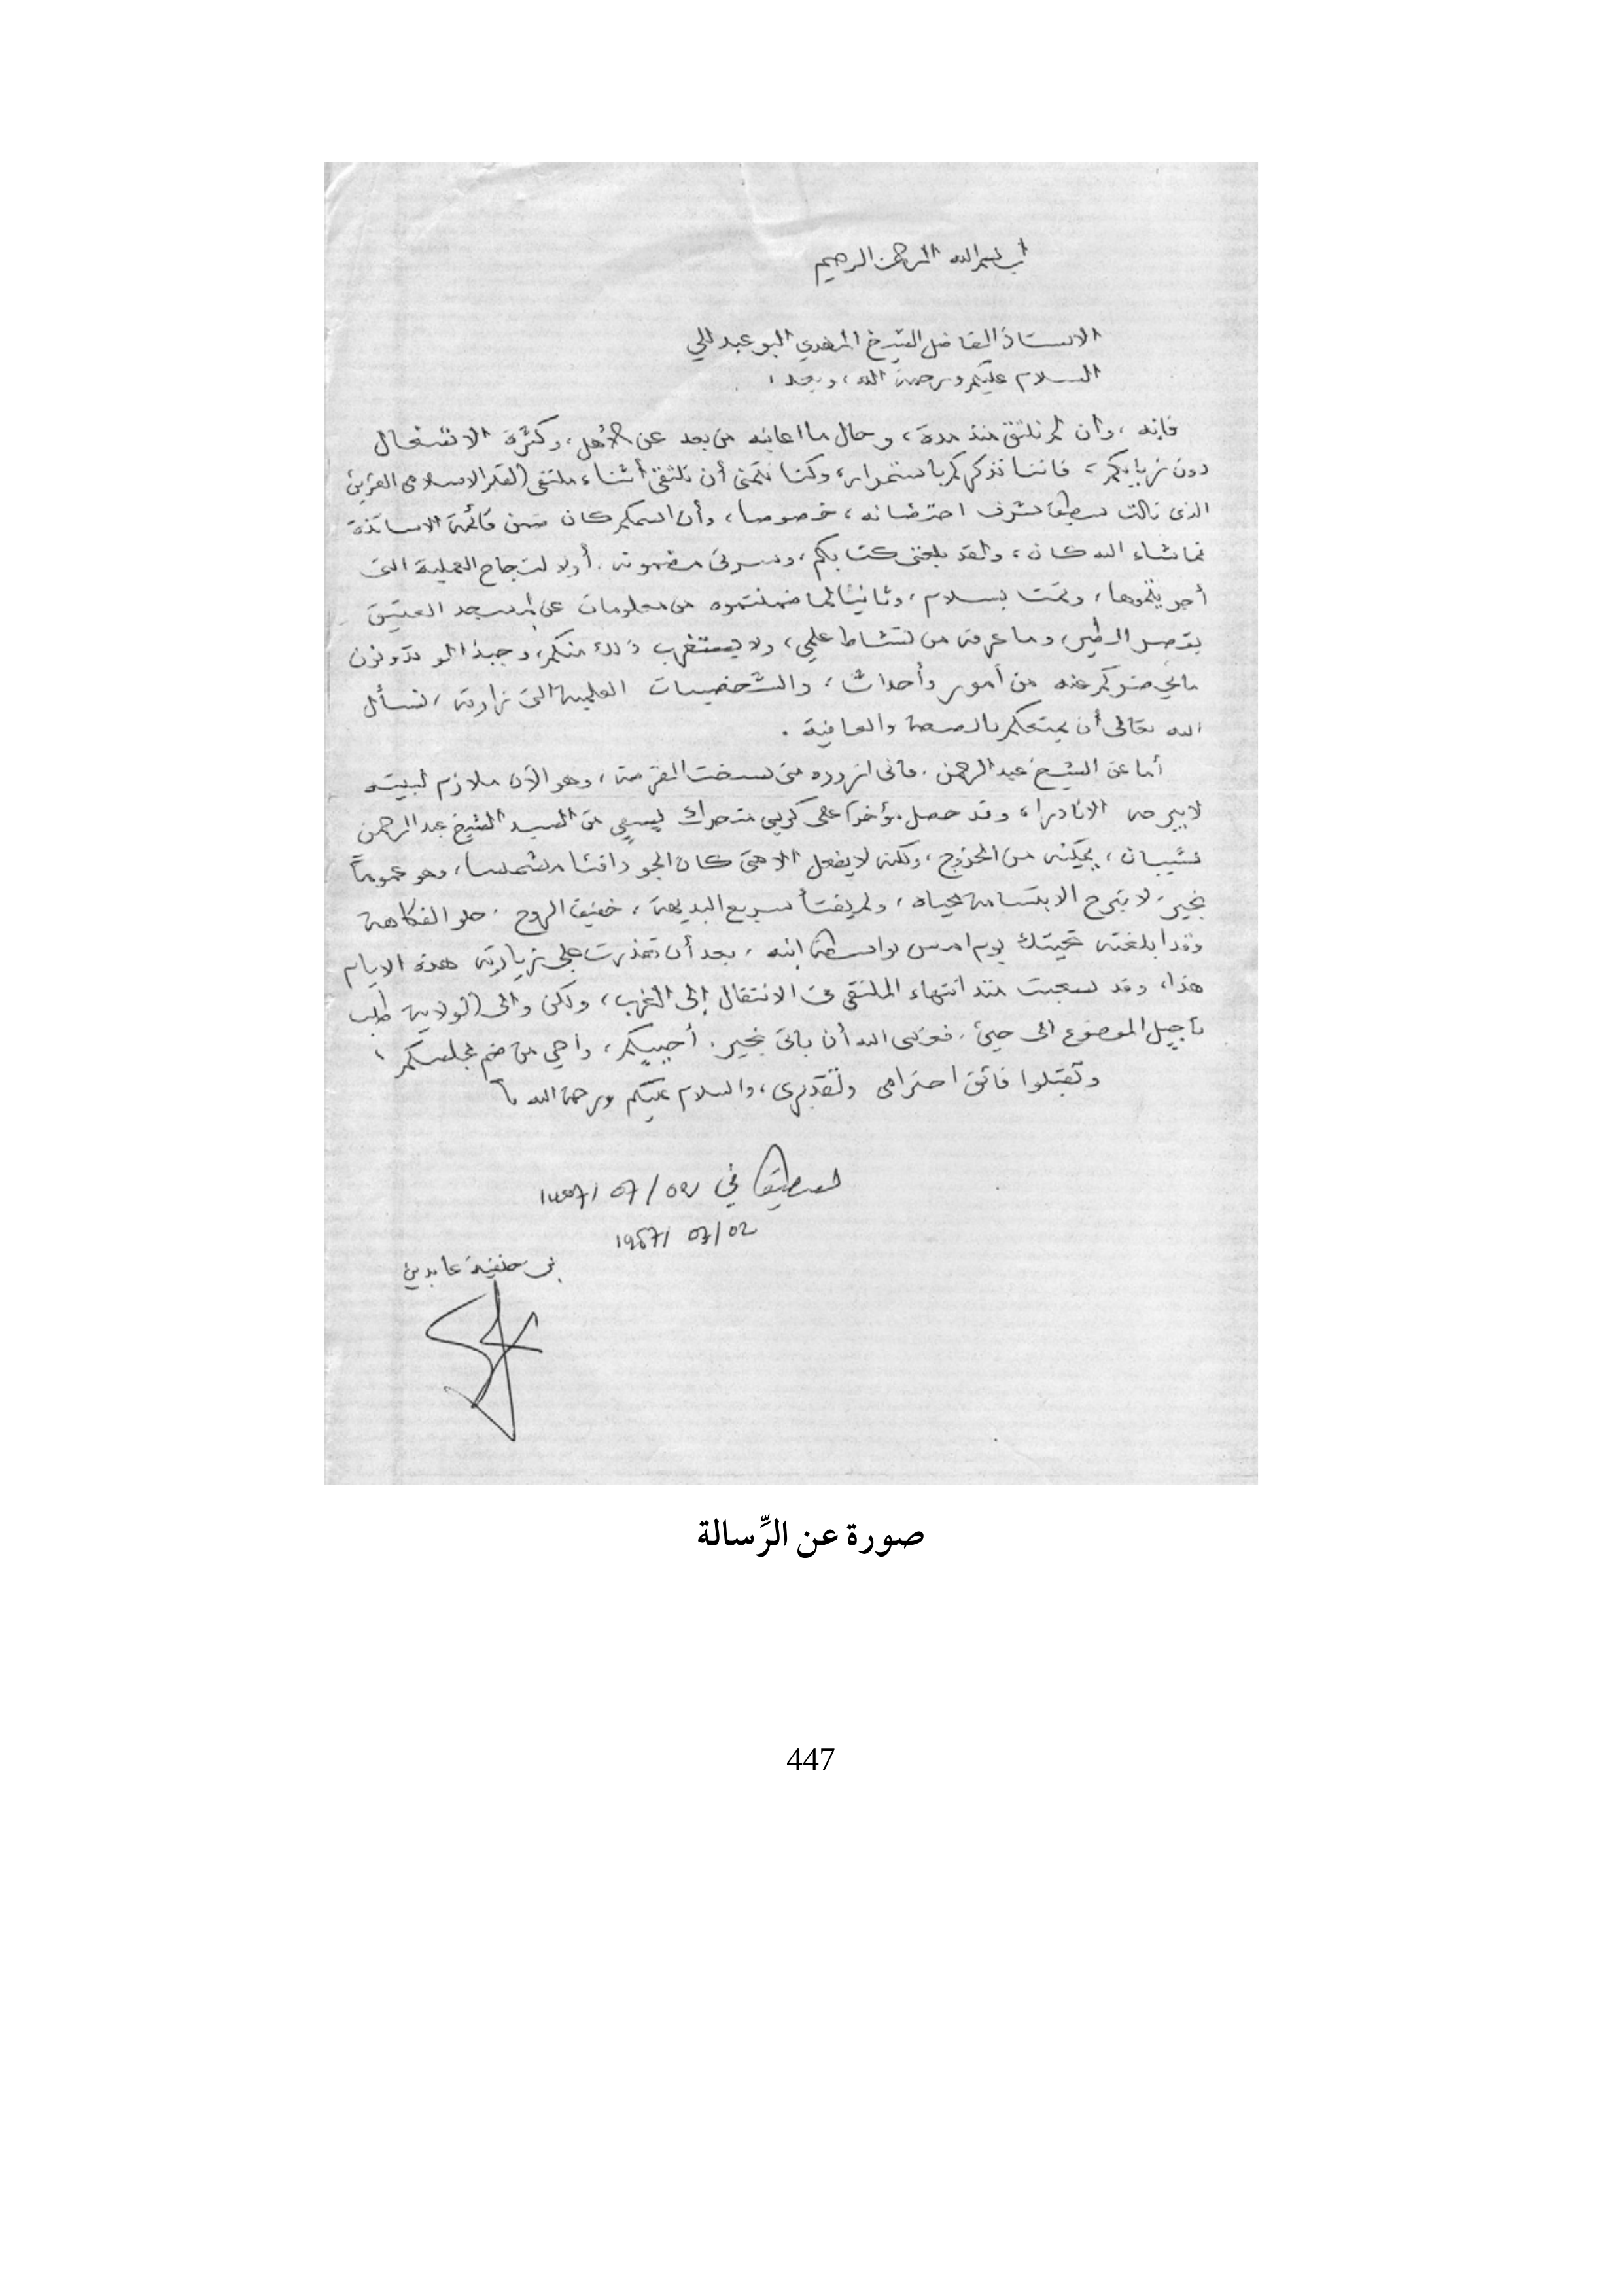 بسم الله الرحمن الرحيم
الاستاذ الفاضل الشيخ المهدي البوعبدلي
السلام عليكم ورحمة الله، وبعد،
فإنه، وان لم نلتق منذ مدة، وحال ما اعانيه من بعد عن الأهل، وكثرة الانشغال
دون زيارتكم، فاننا نذكركم باستمرار، وكنا نتمنى أن نلتقي أثناء ملتقى الفكر الاسلامي
الذي نالت سطيف شرف احتضانه، خصوصا، وأن اسمكم كان ضمن قائمة الاساتذة
فما شاء الله كان، ولقد بلغني كتابكم، وسرني مضمونه. أولا لنجاح العملية التي
أجريتموها، وتمت بسلام، وثانيا لما ضمنتموه من معلومات عن المسجد العتيق
بقصر الطير، وما عرفه من نشاط علمي، ولا يستغرب ذلك منكم، وحبذا لو تدونون
ما في من أمور وأحداث، والشخصيات العلمية التي زارته، نسأل
الله تعالى أن يمتعكم بالصحة والعافية.
أما عن الشيخ عبد الرحمن، فاني ازوره متى سنحت الفرصة، وهو الآن ملازم لبيته
لا يبرحه الا نادرا، وقد حصل مؤخرا على كرسي متحرك بسعي من السيد الشيخ عبد الرحمن
شيبان، يمكنه من الخروج، ولكنه لا يفعل الا متى كان الجو دافئا مشمسا، وهو عموما
بخير، لا تبرح الابتسامة محياه، ولم يفتأ سريع البديهة، خفيف الروح، حلو الفكاهة
وقد ابلغته تحيتك يوم امس بواسطة ابنه، بعد أن تعذرت علي زيارته هذه الايام
هذا، وقد سعيت منذ انتهاء الملتقى في الانتقال إلى الغرب، ولكن والي الولاية طلب
تأجيل الموضوع الى حين، فعسى الله أن يأتي بخير. أحييكم، واحي من ضم مجلسكم،
وتقبلوا فائق احترامي وتقديري، والسلام عليكم ورحمة الله
سطيف في
1987/ 03/02
بن حنفية عابدين
صورة عن الرِّسالة
447